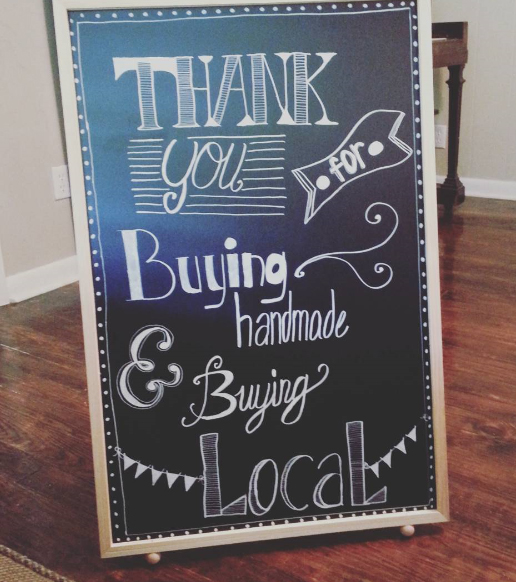 THANK
you
for
Buying
handmade
&
Buying
Local